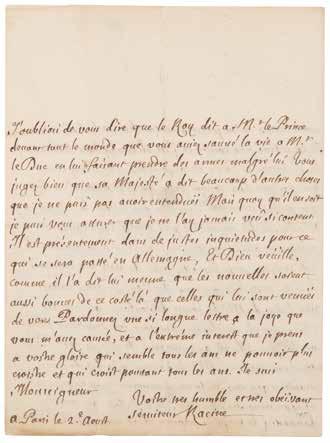 J'oubliois de vous dire que le Roy dit a Mr. le Prince
devant tout le monde que vous aviez sauvé la vie a Mr.
le Duc en lui faisant prendre des armes malgré lui. Vous
jugez bien que sa Majesté a dit beaucoup d'autres choses
que je n'ai pas avoir entendües Mais quoy qu'il en soit
je puis vous asseurer que je ne l'ay jamais veü si content
Il est presentement dans de justes inquietudes pour ce
qui se sera passé en Allemagne, Et Dieu veüille,
comme il l'a dit lui mesme que les nouvelles soient
aussi bonnes de ce costé là que celles qui lui sont venües
de vous. Pardonnez une si longue lettre a la joye que
vous m'avez causée, et a l'extréme interest que je prens
a vostre gloire qui semble tous les ans ne pouvoir plus
croistre et qui croist pourtant tous les ans. Je suis
Monseigneur
Vostre tres humble et tres obeïssant
a Paris le 2e. Aoust. serviteur Racine